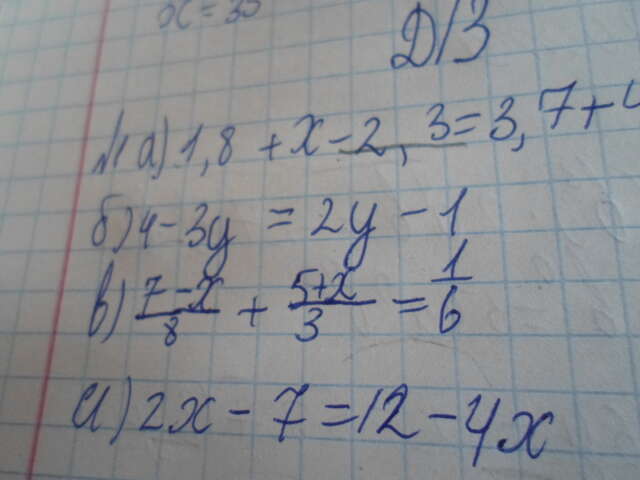 x = 35
Д/З
№1 а) 1,8 + x - 2,3 = 3,7 + 4
б) 4 - 3y = 2y - 1
в) \frac{7-x}{8} + \frac{5+x}{3} = \frac{1}{6}
а) 2x - 7 = 12 - 4x